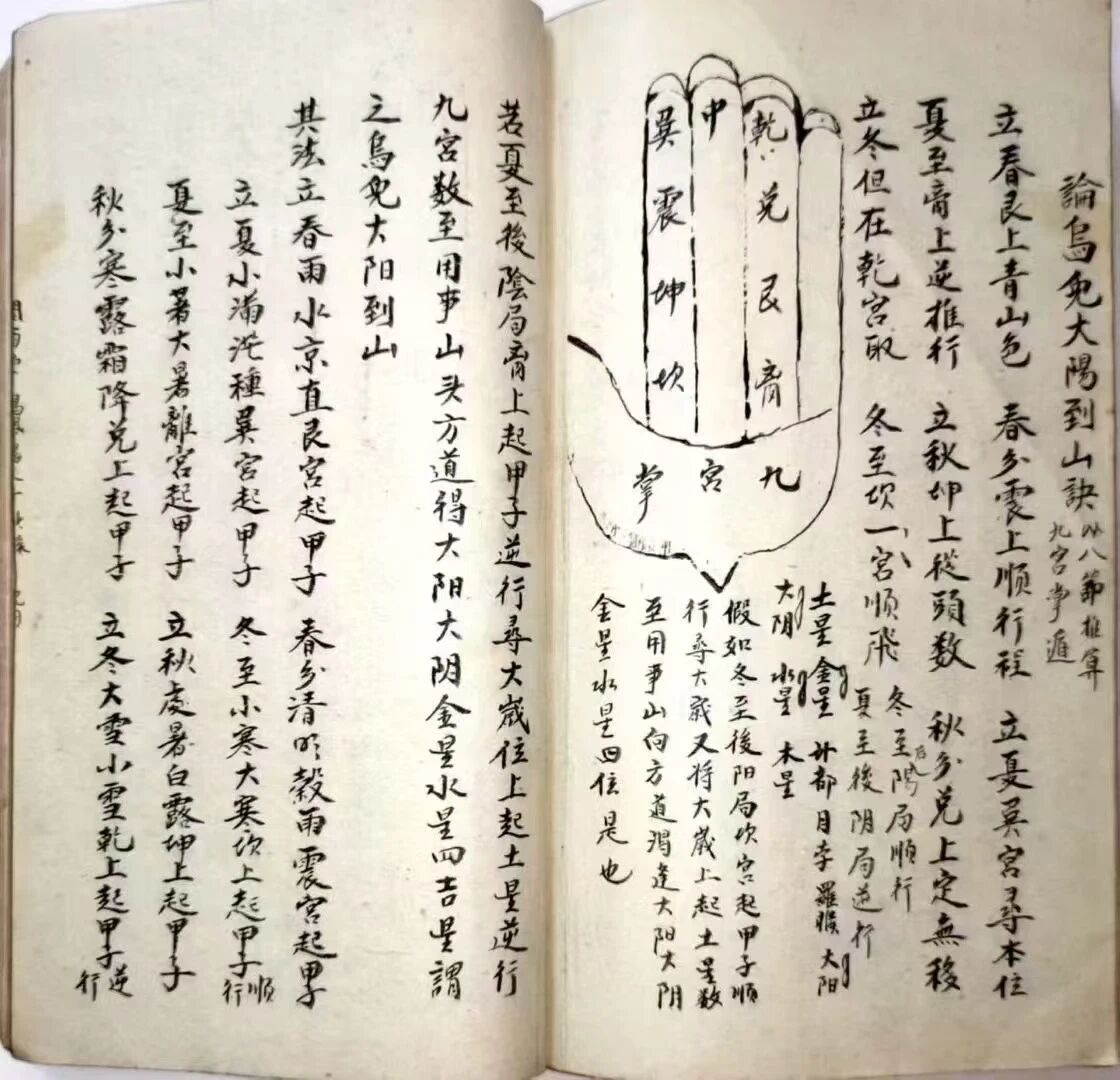 論烏兔大陽到山訣 以八節推算
九宮掌遁
立春艮上青山色 春分震上順行程 立夏巽宮尋本位
夏至离上逆推行 立秋坤上從頭数 秋分兑上定無移
立冬但在乾宮取 冬至坎一宮順飛 冬至后陽局順行
夏至後阴局逆行
乾兑艮离
中
巽震坤坎
九宮掌
土星 金星 计都 月孛 羅睺 大阳
大阴 水星 木星
假如冬至後阳局坎宮起甲子順
行尋大歲又将大歲上起土星数
至用事山向方道渴逢大阳大阴
金星水星四位是也
若夏至後陰局离上起甲子逆行尋大歲位上起土星逆行
九宮数至用事山头方道得大阳大阴金星水星四吉星謂
之烏兔大阳到山
其法立春雨水京直艮宮起甲子 春分清明穀雨震宮起甲子
立夏小満芒種巽宮起甲子 冬至小寒大寒坎上起甲子順行
夏至小暑大暑離宮起甲子 立秋處暑白露坤上起甲子
秋分寒露霜降兑上起甲子 立冬大雪小雪乾上起甲子逆行